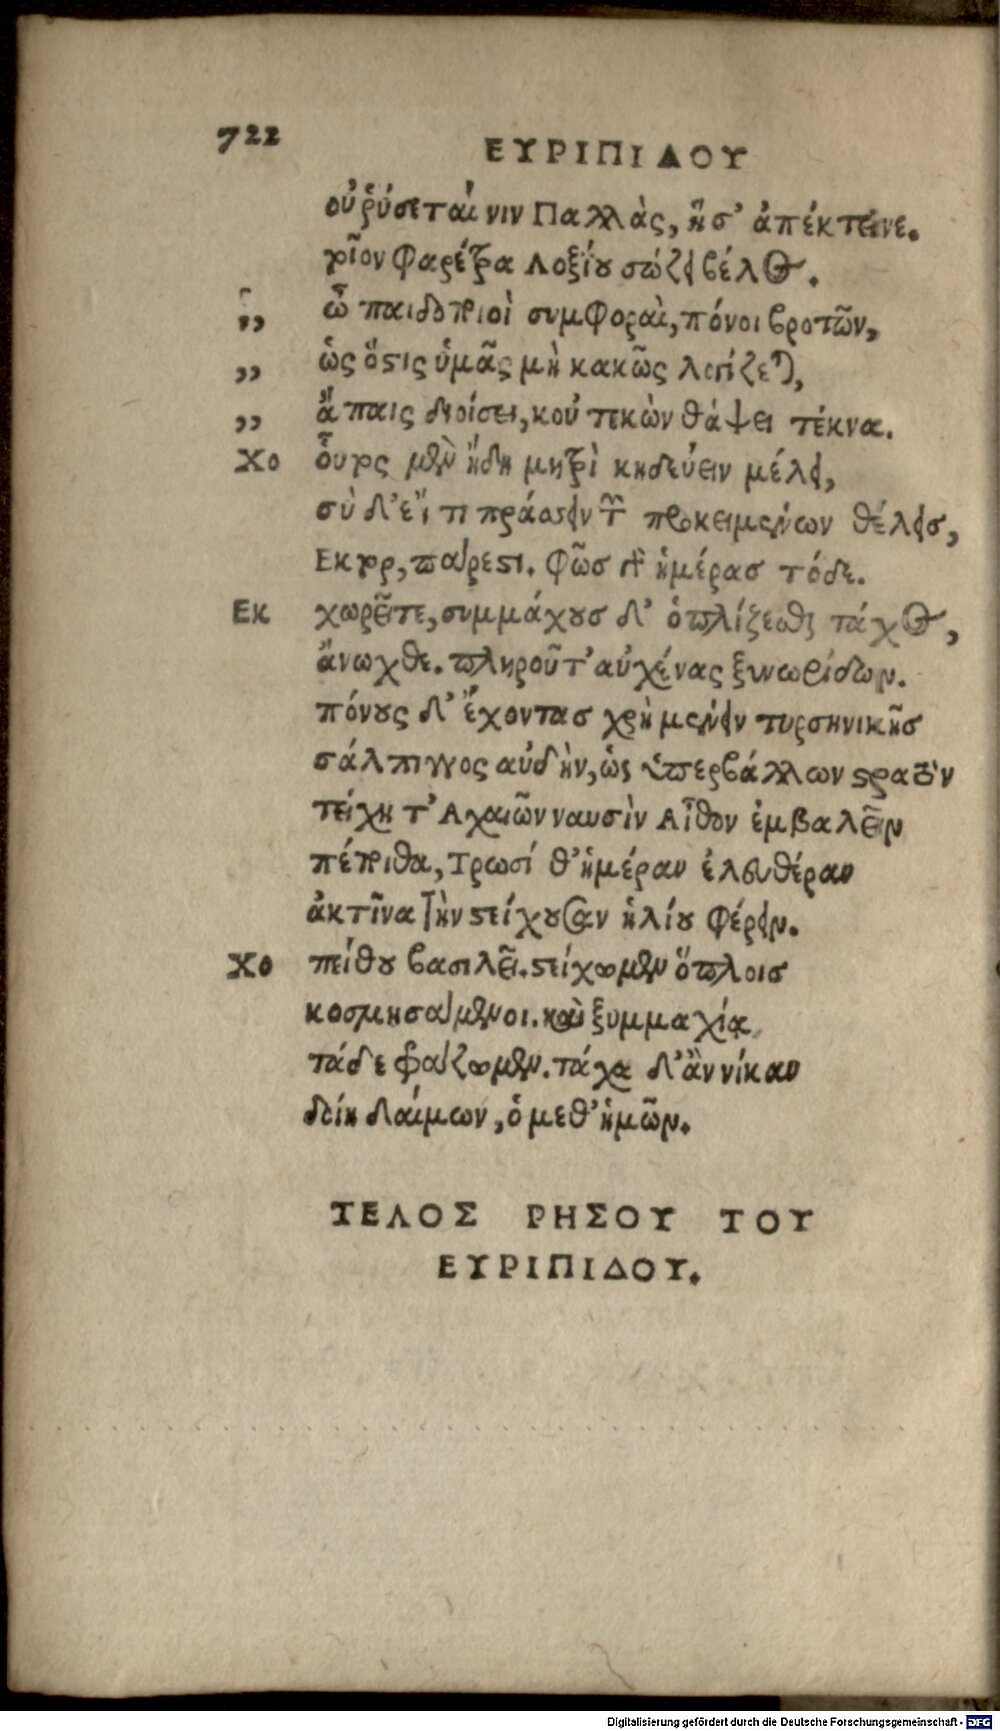 722
ΕΥΡΙΠΙΔΟΥ
οὐ ῥύσεταί νιν Παλλὰς, ἥ σ' ἀπέκτεινε.
τοῖον φαρέτρα Λοξίου σώζει βέλος.
„ ὦ παιδοποιοὶ συμφοραὶ, πόνοι βροτῶν,
„ ὡς ὅστις ὑμᾶς μὴ κακῶς λογίζεται,
„ ἄπαις διοίσει, κοὐ τεκὼν θάψει τέκνα.
Χο οὗτος μὲν ἤδη μητρὶ κηδεύειν μέλει,
σὺ δ' εἴ τι πράσσειν τῶν προκειμένων θέλεις,
Εκτορ, πάρεστι. φῶς γὰρ ἡμέρας τόδε.
Εκ χωρεῖτε, συμμάχους δ' ὁπλίζεσθαι τάχος,
ἄνωχθε. πληροῦτ' αὐχένας ξυνωρίδων.
πόνους δ' ἔχοντας χρὴ μένειν τυρσηνικῆς
σάλπιγγος αὐδὴν, ὡς ὑπερβάλλων στρατὸν
τείχη τ' Αχαιῶν ναυσὶν Αἶθον ἐμβαλεῖν
πέποιθα, Τρωσί θ' ἡμέραν ἐλευθέραν
ἀκτῖνα τὴν στείχουσαν ἡλίου φέρειν.
Χο πείθου βασιλεῖ. στείχωμεν ὅπλοις
κοσμησάμενοι. καὶ ξυμμαχίᾳ
τάδε φράζωμεν. τάχα δ' ἂν νίκαν
δοίη δαίμων, ὁ μεθ' ἡμῶν.
ΤΕΛΟΣ ΡΗΣΟΥ ΤΟΥ
ΕΥΡΙΠΙΔΟΥ.
Digitalisierung gefördert durch die Deutsche Forschungsgemeinschaft - DFG